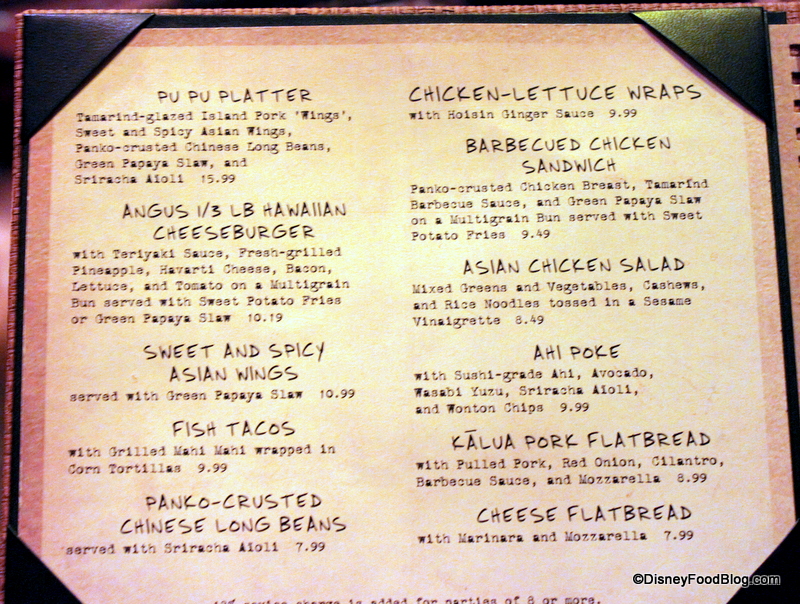 PU PU PLATTER
Tamarind-glazed Island Pork 'Wings',
Sweet and Spicy Asian Wings,
Panko-crusted Chinese Long Beans,
Green Papaya Slaw, and
Sriracha Aioli 15.99
ANGUS 1/3 LB HAWAIIAN
CHEESEBURGER
with Teriyaki Sauce, Fresh-grilled
Pineapple, Havarti Cheese, Bacon,
Lettuce, and Tomato on a Multigrain
Bun served with Sweet Potato Fries
or Green Papaya Slaw 10.19
SWEET AND SPICY
ASIAN WINGS
served with Green Papaya Slaw 10.99
FISH TACOS
with Grilled Mahi Mahi wrapped in
Corn Tortillas 9.99
PANKO-CRUSTED
CHINESE LONG BEANS
served with Sriracha Aioli 7.99
CHICKEN-LETTUCE WRAPS
with Hoisin Ginger Sauce 9.99
BARBECUED CHICKEN
SANDWICH
Panko-crusted Chicken Breast, Tamarind
Barbecue Sauce, and Green Papaya Slaw
on a Multigrain Bun served with Sweet
Potato Fries 9.49
ASIAN CHICKEN SALAD
Mixed Greens and Vegetables, Cashews,
and Rice Noodles tossed in a Sesame
Vinaigrette 8.49
AHI POKE
with Sushi-grade Ahi, Avocado,
Wasabi Yuzu, Sriracha Aioli,
and Wonton Chips 9.99
KĀLUA PORK FLATBREAD
with Pulled Pork, Red Onion, Cilantro,
Barbecue Sauce, and Mozzarella 8.99
CHEESE FLATBREAD
with Marinara and Mozzarella 7.99
charge is added for parties of 8 or more.
©DisneyFoodBlog.com